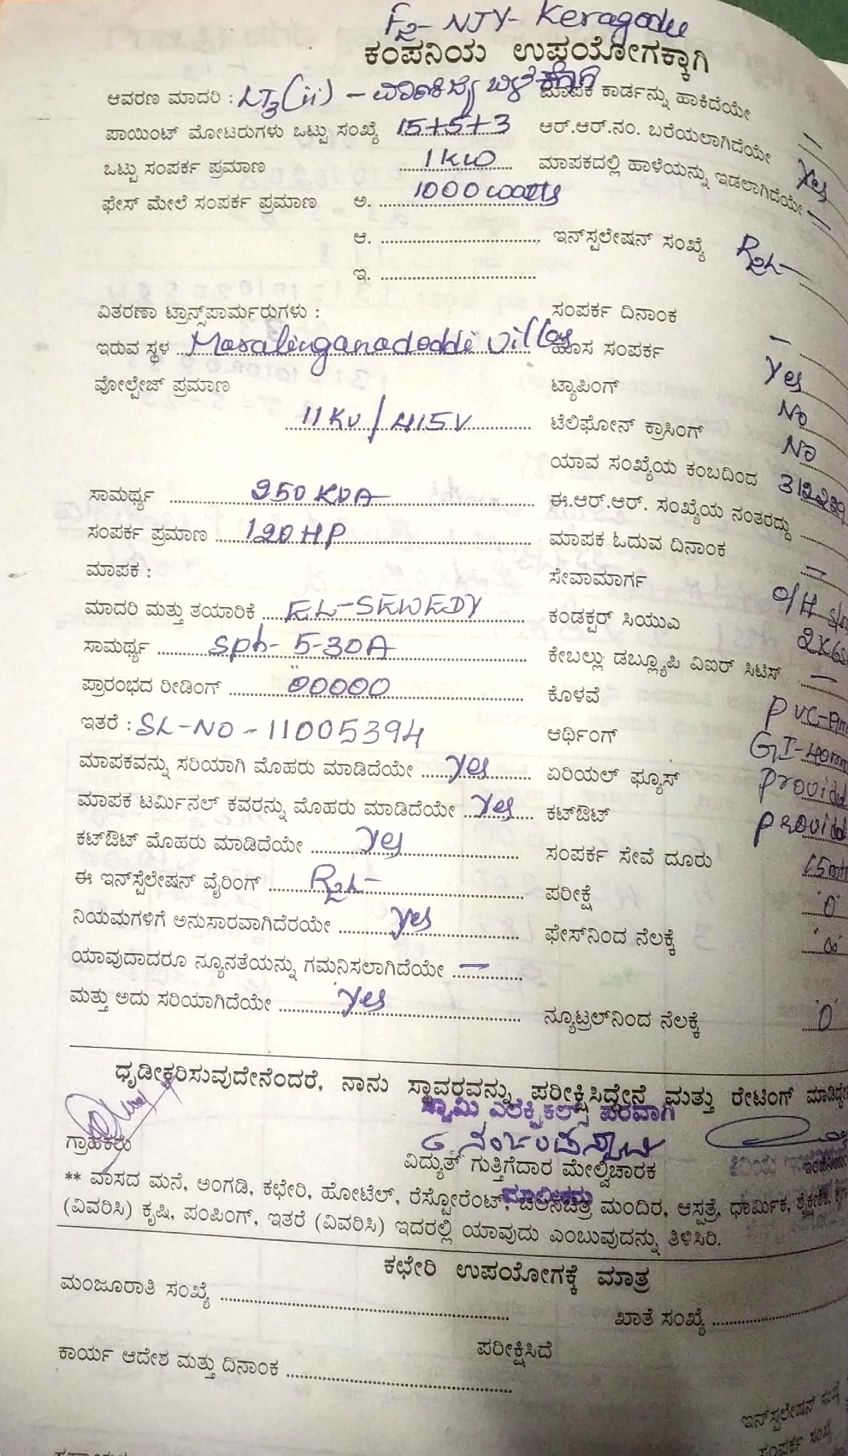 F2- NJY- Keragodu
ಕಂಪನಿಯ ಉಪಯೋಗಕ್ಕಾಗಿ
ಆವರಣ ಮಾದರಿ : LT3(ii) - ವಾಣಿಜ್ಯ ಬಳಕೆಗಾಗಿ ಮಾಪಕ ಕಾರ್ಡನ್ನು ಹಾಕಿದೆಯೇ
ಪಾಯಿಂಟ್ ಮೋಟರುಗಳು ಒಟ್ಟು ಸಂಖ್ಯೆ 15+5+3 ಆರ್.ಆರ್.ನಂ. ಬರೆಯಲಾಗಿದೆಯೇ Yes
ಒಟ್ಟು ಸಂಪರ್ಕ ಪ್ರಮಾಣ 1KW ಮಾಪಕದಲ್ಲಿ ಹಾಳೆಯನ್ನು ಇಡಲಾಗಿದೆಯೇ —
ಫೇಸ್ ಮೇಲೆ ಸಂಪರ್ಕ ಪ್ರಮಾಣ ಅ. 1000 watts
ಆ. ಇನ್‌ಸ್ಪಲೇಷನ್ ಸಂಖ್ಯೆ R2L-
ಇ.
ವಿತರಣಾ ಟ್ರಾನ್ಸ್‌ಪಾರ್ಮರುಗಳು : ಸಂಪರ್ಕ ದಿನಾಂಕ —
ಇರುವ ಸ್ಥಳ Maralinganadoddi Village ಹೊಸ ಸಂಪರ್ಕ Yes
ವೋಲ್ಟೇಜ್ ಪ್ರಮಾಣ ಟ್ಯಾಪಿಂಗ್ No
11KV/415V ಟೆಲಿಫೋನ್ ಕ್ರಾಸಿಂಗ್ No
ಯಾವ ಸಂಖ್ಯೆಯ ಕಂಬದಿಂದ
ಸಾಮರ್ಥ್ಯ 250 KVA ಈ.ಆರ್.ಆರ್. ಸಂಖ್ಯೆಯ ನಂತರದ್ದು
ಸಂಪರ್ಕ ಪ್ರಮಾಣ 120 HP ಮಾಪಕ ಓದುವ ದಿನಾಂಕ —
ಮಾಪಕ : ಸೇವಾಮಾರ್ಗ O/H
ಮಾದರಿ ಮತ್ತು ತಯಾರಿಕೆ EL-SEWEDY ಕಂಡಕ್ಟರ್ ಸಿಯುಎ
ಸಾಮರ್ಥ್ಯ Sph- 5-30A ಕೇಬಲ್ಲು ಡಬ್ಲ್ಯೂಪಿ ವಿಐರ್ ಸಿಟಿಸ್ —
ಪ್ರಾರಂಭದ ರೀಡಿಂಗ್ 00000 ಕೊಳವೆ PVC-
ಇತರೆ : SL-NO - 11005394 ಆರ್ಥಿಂಗ್ GI-
ಮಾಪಕವನ್ನು ಸರಿಯಾಗಿ ಮೊಹರು ಮಾಡಿದೆಯೇ Yes ಏರಿಯಲ್ ಫ್ಯೂಸ್ Provided
ಮಾಪಕ ಟರ್ಮಿನಲ್ ಕವರನ್ನು ಮೊಹರು ಮಾಡಿದೆಯೇ Yes ಕಟ್‌ಔಟ್ Provided
ಕಟ್‌ಔಟ್ ಮೊಹರು ಮಾಡಿದೆಯೇ Yes ಸಂಪರ್ಕ ಸೇವೆ ದೂರು
ಈ ಇನ್‌ಸ್ಪಲೇಷನ್ ವೈರಿಂಗ್ R2L- ಪರೀಕ್ಷೆ '0'
ನಿಯಮಗಳಿಗೆ ಅನುಸಾರವಾಗಿದೆರಯೇ Yes ಫೇಸ್‌ನಿಂದ ನೆಲಕ್ಕೆ
ಯಾವುದಾದರೂ ನ್ಯೂನತೆಯನ್ನು ಗಮನಿಸಲಾಗಿದೆಯೇ —
ಮತ್ತು ಅದು ಸರಿಯಾಗಿದೆಯೇ Yes ನ್ಯೂಟ್ರಲ್‌ನಿಂದ ನೆಲಕ್ಕೆ '0'
ಧೃಡೀಕರಿಸುವುದೇನೆಂದರೆ, ನಾನು ಸ್ಥಾವರವನ್ನು ಪರೀಕ್ಷಿಸಿದ್ದೇನೆ ಮತ್ತು ರೇಟಿಂಗ್
ಸ್ವಾಮಿ ಎಲೆಕ್ಟ್ರಿಕಲ್ಸ್ ಪರವಾಗಿ
ಗ್ರಾಹಕರು
ವಿದ್ಯುತ್ ಗುತ್ತಿಗೆದಾರ ಮೇಲ್ವಿಚಾರಕ
ಮಾಲೀಕರು
** ವಾಸದ ಮನೆ, ಅಂಗಡಿ, ಕಛೇರಿ, ಹೋಟೆಲ್, ರೆಸ್ಟೋರೆಂಟ್, ಚಲನಚಿತ್ರ ಮಂದಿರ, ಆಸ್ಪತ್ರೆ, ಧಾರ್ಮಿಕ,
(ವಿವರಿಸಿ) ಕೃಷಿ, ಪಂಪಿಂಗ್, ಇತರೆ (ವಿವರಿಸಿ) ಇದರಲ್ಲಿ ಯಾವುದು ಎಂಬುವುದನ್ನು ತಿಳಿಸಿರಿ.
ಕಛೇರಿ ಉಪಯೋಗಕ್ಕೆ ಮಾತ್ರ
ಮಂಜೂರಾತಿ ಸಂಖ್ಯೆ ಖಾತೆ ಸಂಖ್ಯೆ
ಪರೀಕ್ಷಿಸಿದೆ
ಕಾರ್ಯ ಆದೇಶ ಮತ್ತು ದಿನಾಂಕ
ಇನ್‌ಸ್ಪಲೇಷನ್ ಸಂಖ್ಯೆ
ಸಂಪರ್ಕ ಸಂಖ್ಯೆ